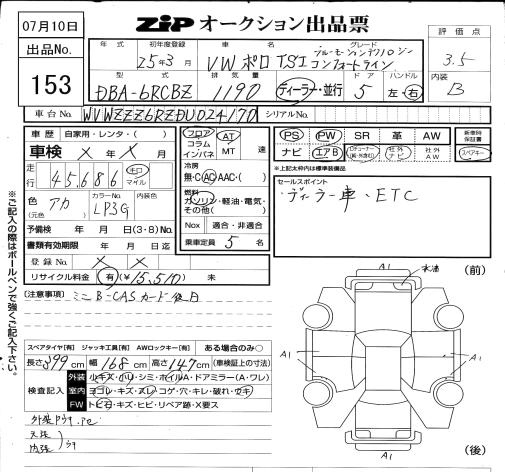 07月10日
ZiP オークション出品票
出品No.
153
年式
初年度登録
25年3月
車名
VW ポロ TSI
グレード
ブルーモーションテクノロジー
コンフォートライン
評価点
3.5
内装
B
型式
DBA-6RCBZ
排気量
1190
ディーラー・並行
ドア
5
ハンドル
左・右
車台No.
WVWZZZ6RZDU024170
シリアルNo.
車歴
自家用・レンタ・( )
車検 × 年 × 月
走行
45686
キロ
マイル
色
アカ
(元色)
カラーNo.
LP3G
内装色
予備検 年 月 日(3・8)No.
書類有効期限 年 月 日迄
登録No.
× ×
リサイクル料金 有 (¥15,510) 未
フロア
コラム
インパネ
AT
MT
速
冷房
無・C・AC・AAC・( )
燃料
ガソリン・軽油・電気・
その他( )
Nox 適合・非適合
乗車定員 5 名
PS PW SR 革 AW
ナビ エアB
社外
ナビ
社外
AW
新車時
保証書
スペアキー
※上記太枠内は標準装備品
セールスポイント
ディーラー車、ETC
(注意事項)
ミニB-CASカード後日
※ご記入の際はボールペンで強くご記入下さい。
スペアタイヤ【有】 ジャッキ工具【有】 AWロックキー【有】 ある場合のみ○
長さ399cm 幅168cm 高さ147cm (車検証上の寸法)
検査記入
外装 小キズ・小凹・シミ・ホイルA・ドアミラー(A・ワレ)
室内 ヨゴレ・キズ・スレ・コゲ・穴・キレ・破れ・ウキ
FW トビ石・キズ・ヒビ・リペア跡・X要ス
天張
内張
(前)
A1
水油
A1
A1
A1
(後)